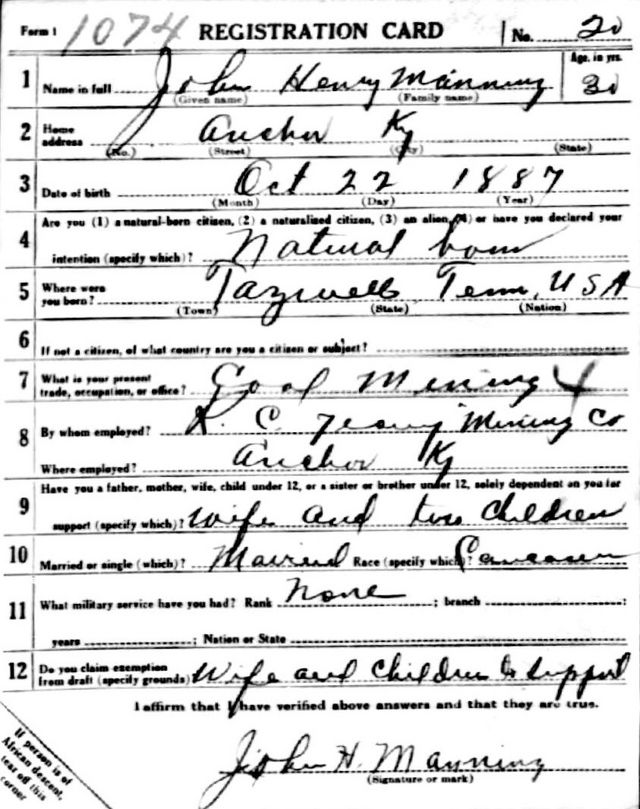 Form 1 1074 REGISTRATION CARD No. 20
1 Name in full John Henry Manning Age, in yrs. 30
(Given name) (Family name)
2 Home address Anchor Ky
(No.) (Street) (City) (State)
3 Date of birth Oct 22 1887
(Month) (Day) (Year)
4 Are you (1) a natural-born citizen, (2) a naturalized citizen, (3) an alien, (4) or have you declared your
intention (specify which)? Natural born
5 Where were you born? Tazwell Tenn, USA
(Town) (State) (Nation)
6 If not a citizen, of what country are you a citizen or subject?
7 What is your present trade, occupation, or office? Coal Mining 4
8 By whom employed? K. C. Mining Co
Where employed? Anchor Ky
9 Have you a father, mother, wife, child under 12, or a sister or brother under 12, solely dependent on you for
support (specify which)? Wife and two children
10 Married or single (which)? Married Race (specify which)?
11 What military service have you had? Rank None ; branch ;
years ; Nation or State
12 Do you claim exemption from draft (specify grounds) Wife and children to support
I affirm that I have verified above answers and that they are true.
John H. Manning
(Signature or mark)
If person is of
African descent,
tear off this
corner